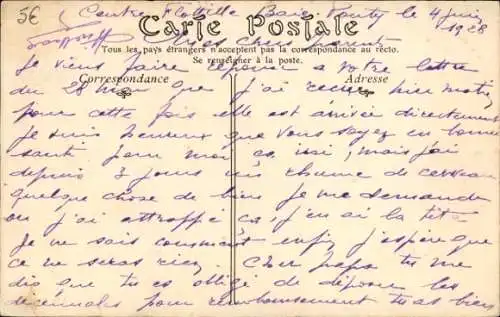 5€ Centre Flottille Baie Ponty le 4 juin
1928
Carte Postale
Mes chers parents
Tous les pays étrangers n'acceptent pas la correspondance au recto.
Se renseigner à la poste.
Correspondance Adresse
Je viens faire réponse a votre lettre
du 28 mai que j'ai reçue hier matin
pour cette fois elle est arrivée directement
Je suis heureux que vous soyez en bonne
santé pour moi ça issi, mais j'ai
depuis 3 jours un rhume de cerveau
quelque chose de bien je me demande
ou j'ai attroppé ça, j'en ai la tête
Je ne sais comment enfin j'espère que
ce ne seras rien. Cher papa tu me
dis que tu es obligé de déposer les
décennales pour remboursement tu as bien